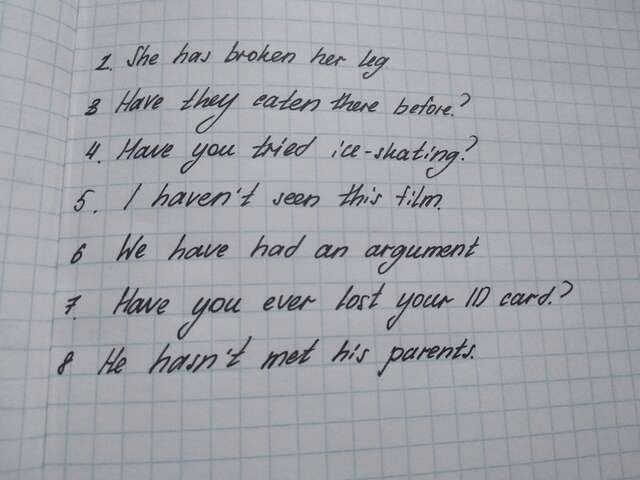 1. She has broken her leg
3 Have they eaten there before?
4. Have you tried ice-skating?
5. I haven't seen this film.
6 We have had an argument
7. Have you ever lost your ID card?
8 He hasn't met his parents.